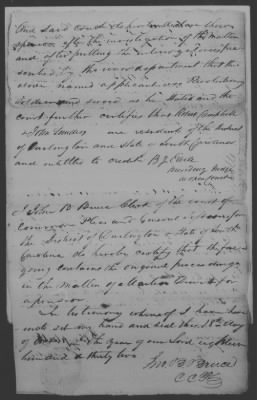 And said court do
opinion after the investigation of the matter
and after putting the interrogatories
by the war department that the
above named applicant was a Revolutionary
Soldier and served as he states and the
court further certifies that Robert Campbell
& John are residents of the District
of Darlington and State of South Carolina
and entitled to credit B J Earle
Presiding Judge
I John B Bruce Clerk of the court of
Common Pleas and General Sessions for
the District of Darlington & State of South
Carolina do hereby certify that the fore
going contains the original proceedings
in the matter of for
a pension
In testimony whereof I have here
unto set my hand and seal this day
of in the year of our Lord eighteen
hundred & thirty two
Jno B Bruce
C C Pl